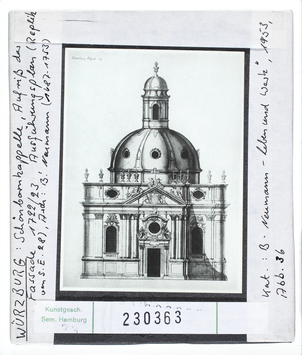 WÜRZBURG: Schönbornkappelle, Aufriß der
Fassade 1722/23 Ausführungsplan (Replik
von S.E. 28), Arch: B. Neumann (1687-1753)
Kunstgesch.
Sem. Hamburg
230363
Kat.: B. Neumann - Leben und Werk", 1953,
Abb. 36